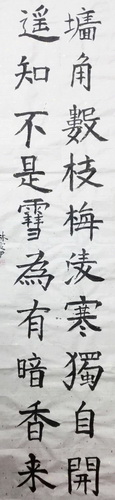 墻角數枝梅凌寒獨自開
遥知不是雪為有暗香来